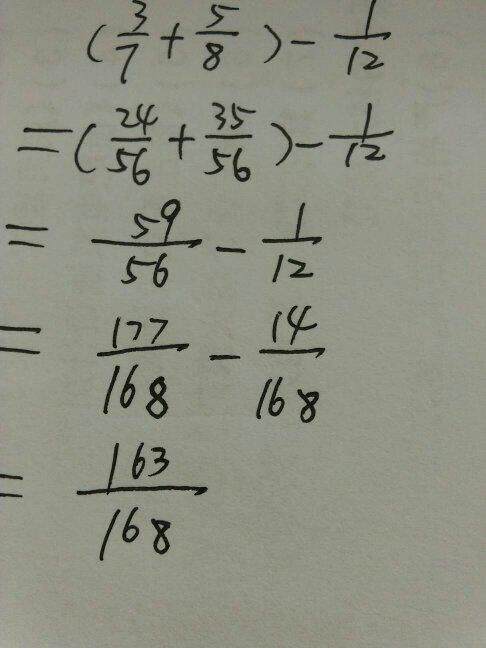 (3/7 + 5/8) - 1/12
= (24/56 + 35/56) - 1/12
= 59/56 - 1/12
= 177/168 - 14/168
= 163/168